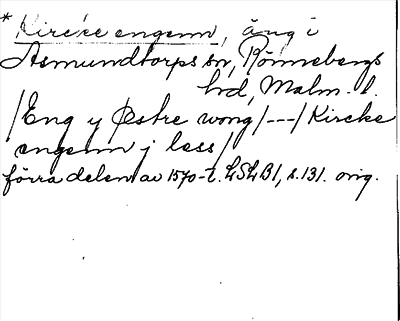 * Kircke engenn, äng i
Asmundtorps sn, Rönnebergs
hd, Malm. l.
/Eng y Østre wong/---/Kircke
engenn j less/
förra delen av 1570-t. LSLB1, s.131. orig.